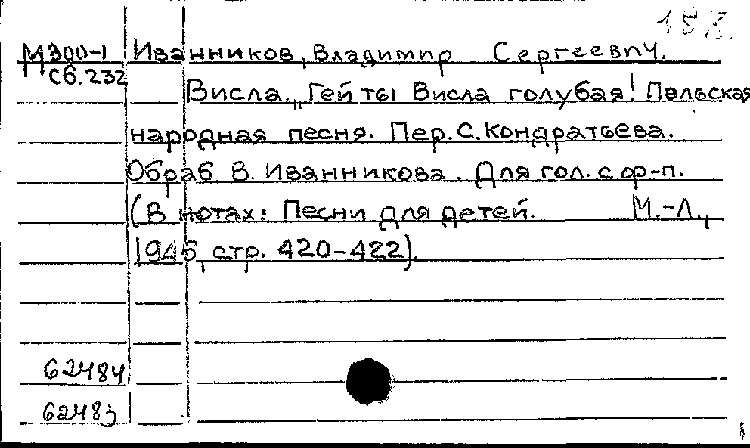 М300-1 Иванников, Владимир Сергеевич.
Сб.232
Висла. "Гей ты Висла голубая! Польская
народная песня. Пер. С. Кондратьева.
Обраб. В. Иванникова. Для гол. с ф-п.
(В нотах: Песни для детей. М.-Л.,
1945, стр. 420-422).
62484
62483